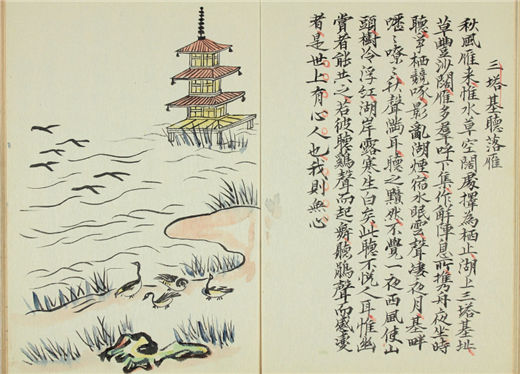 三塔基聽落雁
秋風雁来惟水草空闊處擇為栖止湖上三塔基址
草豐沙闊雁多羣呼下集作解陣息所攜舟夜坐時
聽爭栖競啄影亂湖煙宿水眠雲聲悽夜月基畔
嘹〻秋聲滿耳聽之黯然不覺一夜西風使山
頭樹冷浮紅湖岸露寒生白矣此聽不悅人耳惟幽
賞者能共之若彼聽鷄聲而起舞聽鵑聲而感變
者是世上有心人也我則無心